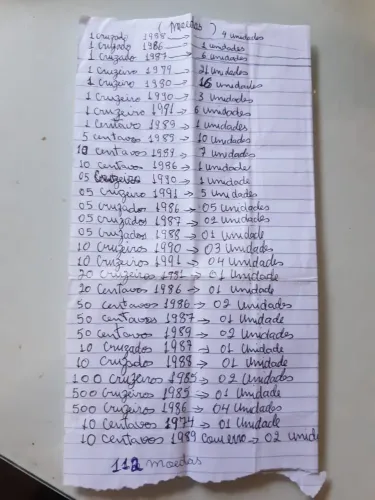 (moedas)
1 cruzado 1988 → 9 unidades
1 cruzado 1986 → 1 unidades
1 cruzado 1987 → 6 unidades
1 cruzeiro 1979 → 21 unidades
1 cruzeiro 1980 → 16 unidades
1 cruzeiro 1990 → 3 unidades
1 cruzeiro 1991 → 6 unidades
1 centavo 1989 → 1 unidades
5 centavos 1989 → 10 unidades
10 centavos 1989 → 7 unidades
10 centavos 1986 → 1 unidade
05 Cruzeiros 1990 → 1 unidade
05 cruzeiro 1991 → 5 unidades
05 cruzados 1986 → 05 unidades
05 cruzados 1987 → 02 unidades
05 cruzados 1988 → 01 unidade
10 cruzeiros 1990 → 03 unidades
10 cruzeiros 1991 → 04 unidades
20 cruzeiros 1981 → 01 unidade
20 centavos 1986 → 01 unidade
50 centavos 1986 → 02 unidades
50 centavos 1987 → 01 unidade
50 centavos 1989 → 02 unidades
10 cruzados 1987 → 01 unidade
10 cruzado 1988 → 01 unidade
100 cruzeiros 1985 → 02 unidades
500 cruzeiros 1985 → 01 unidade
500 cruzeiros 1986 → 04 unidades
10 centavos 1974 → 01 unidade
10 centavos 1989 com erro → 02 unid
112 moedas